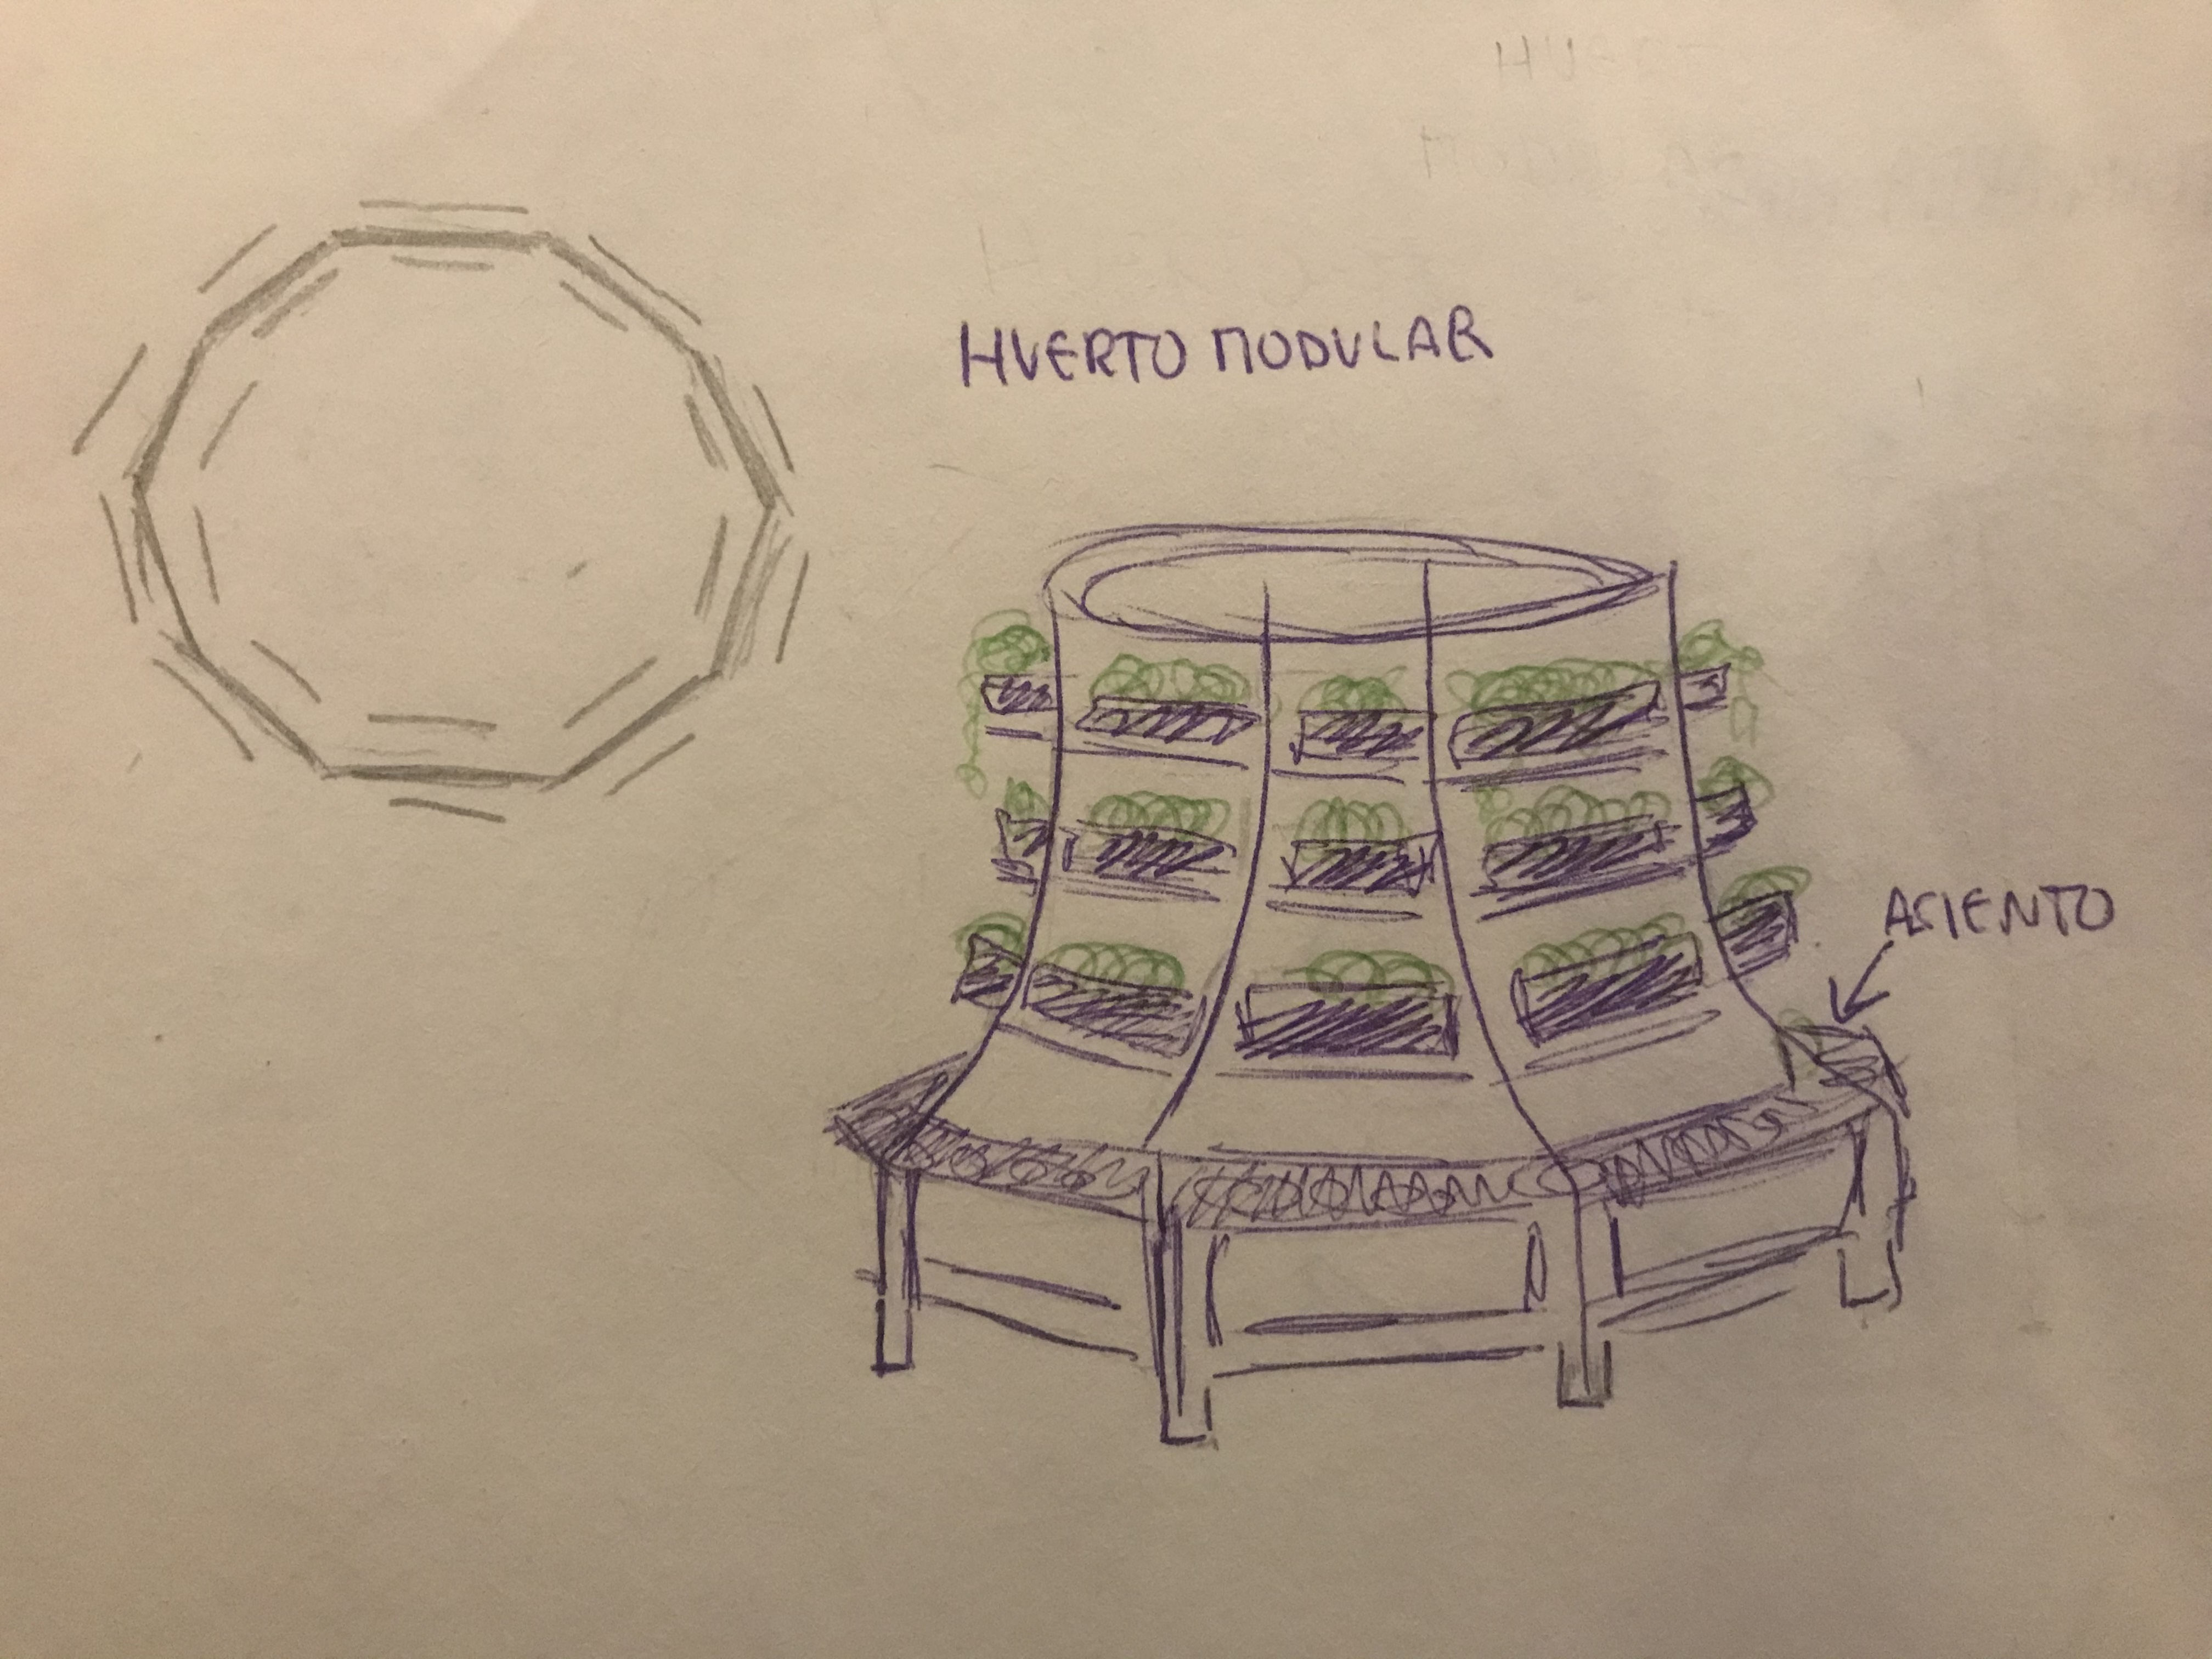 HUERTO MODULAR
ASIENTO